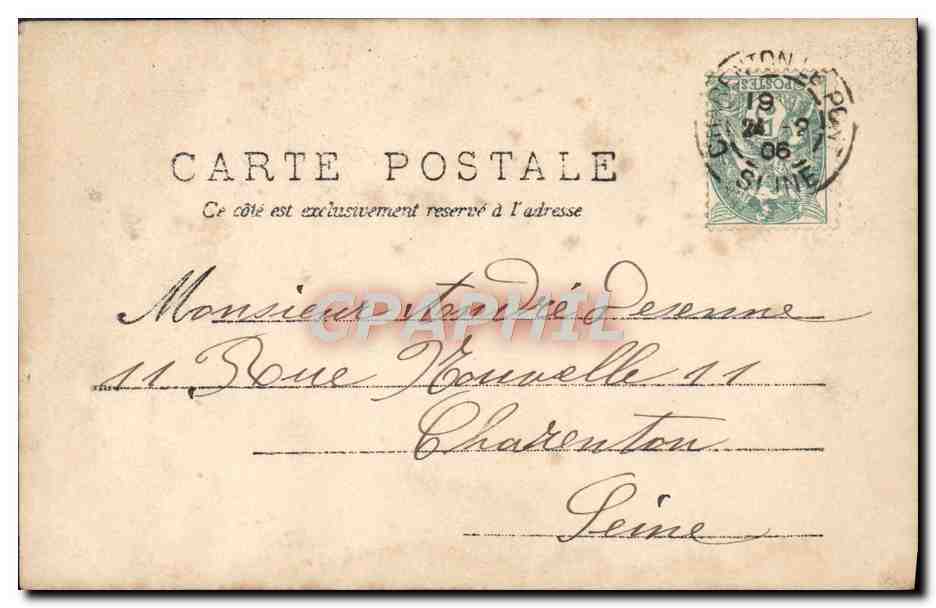 CHARENTON LE PONT
19
24 -2
06
SEINE
POSTES
CARTE POSTALE
Ce côté est exclusivement reservé à l'adresse
Monsieur André Desenne
CPAPHIL
11 Rue Nouvelle 11
Charenton
Seine